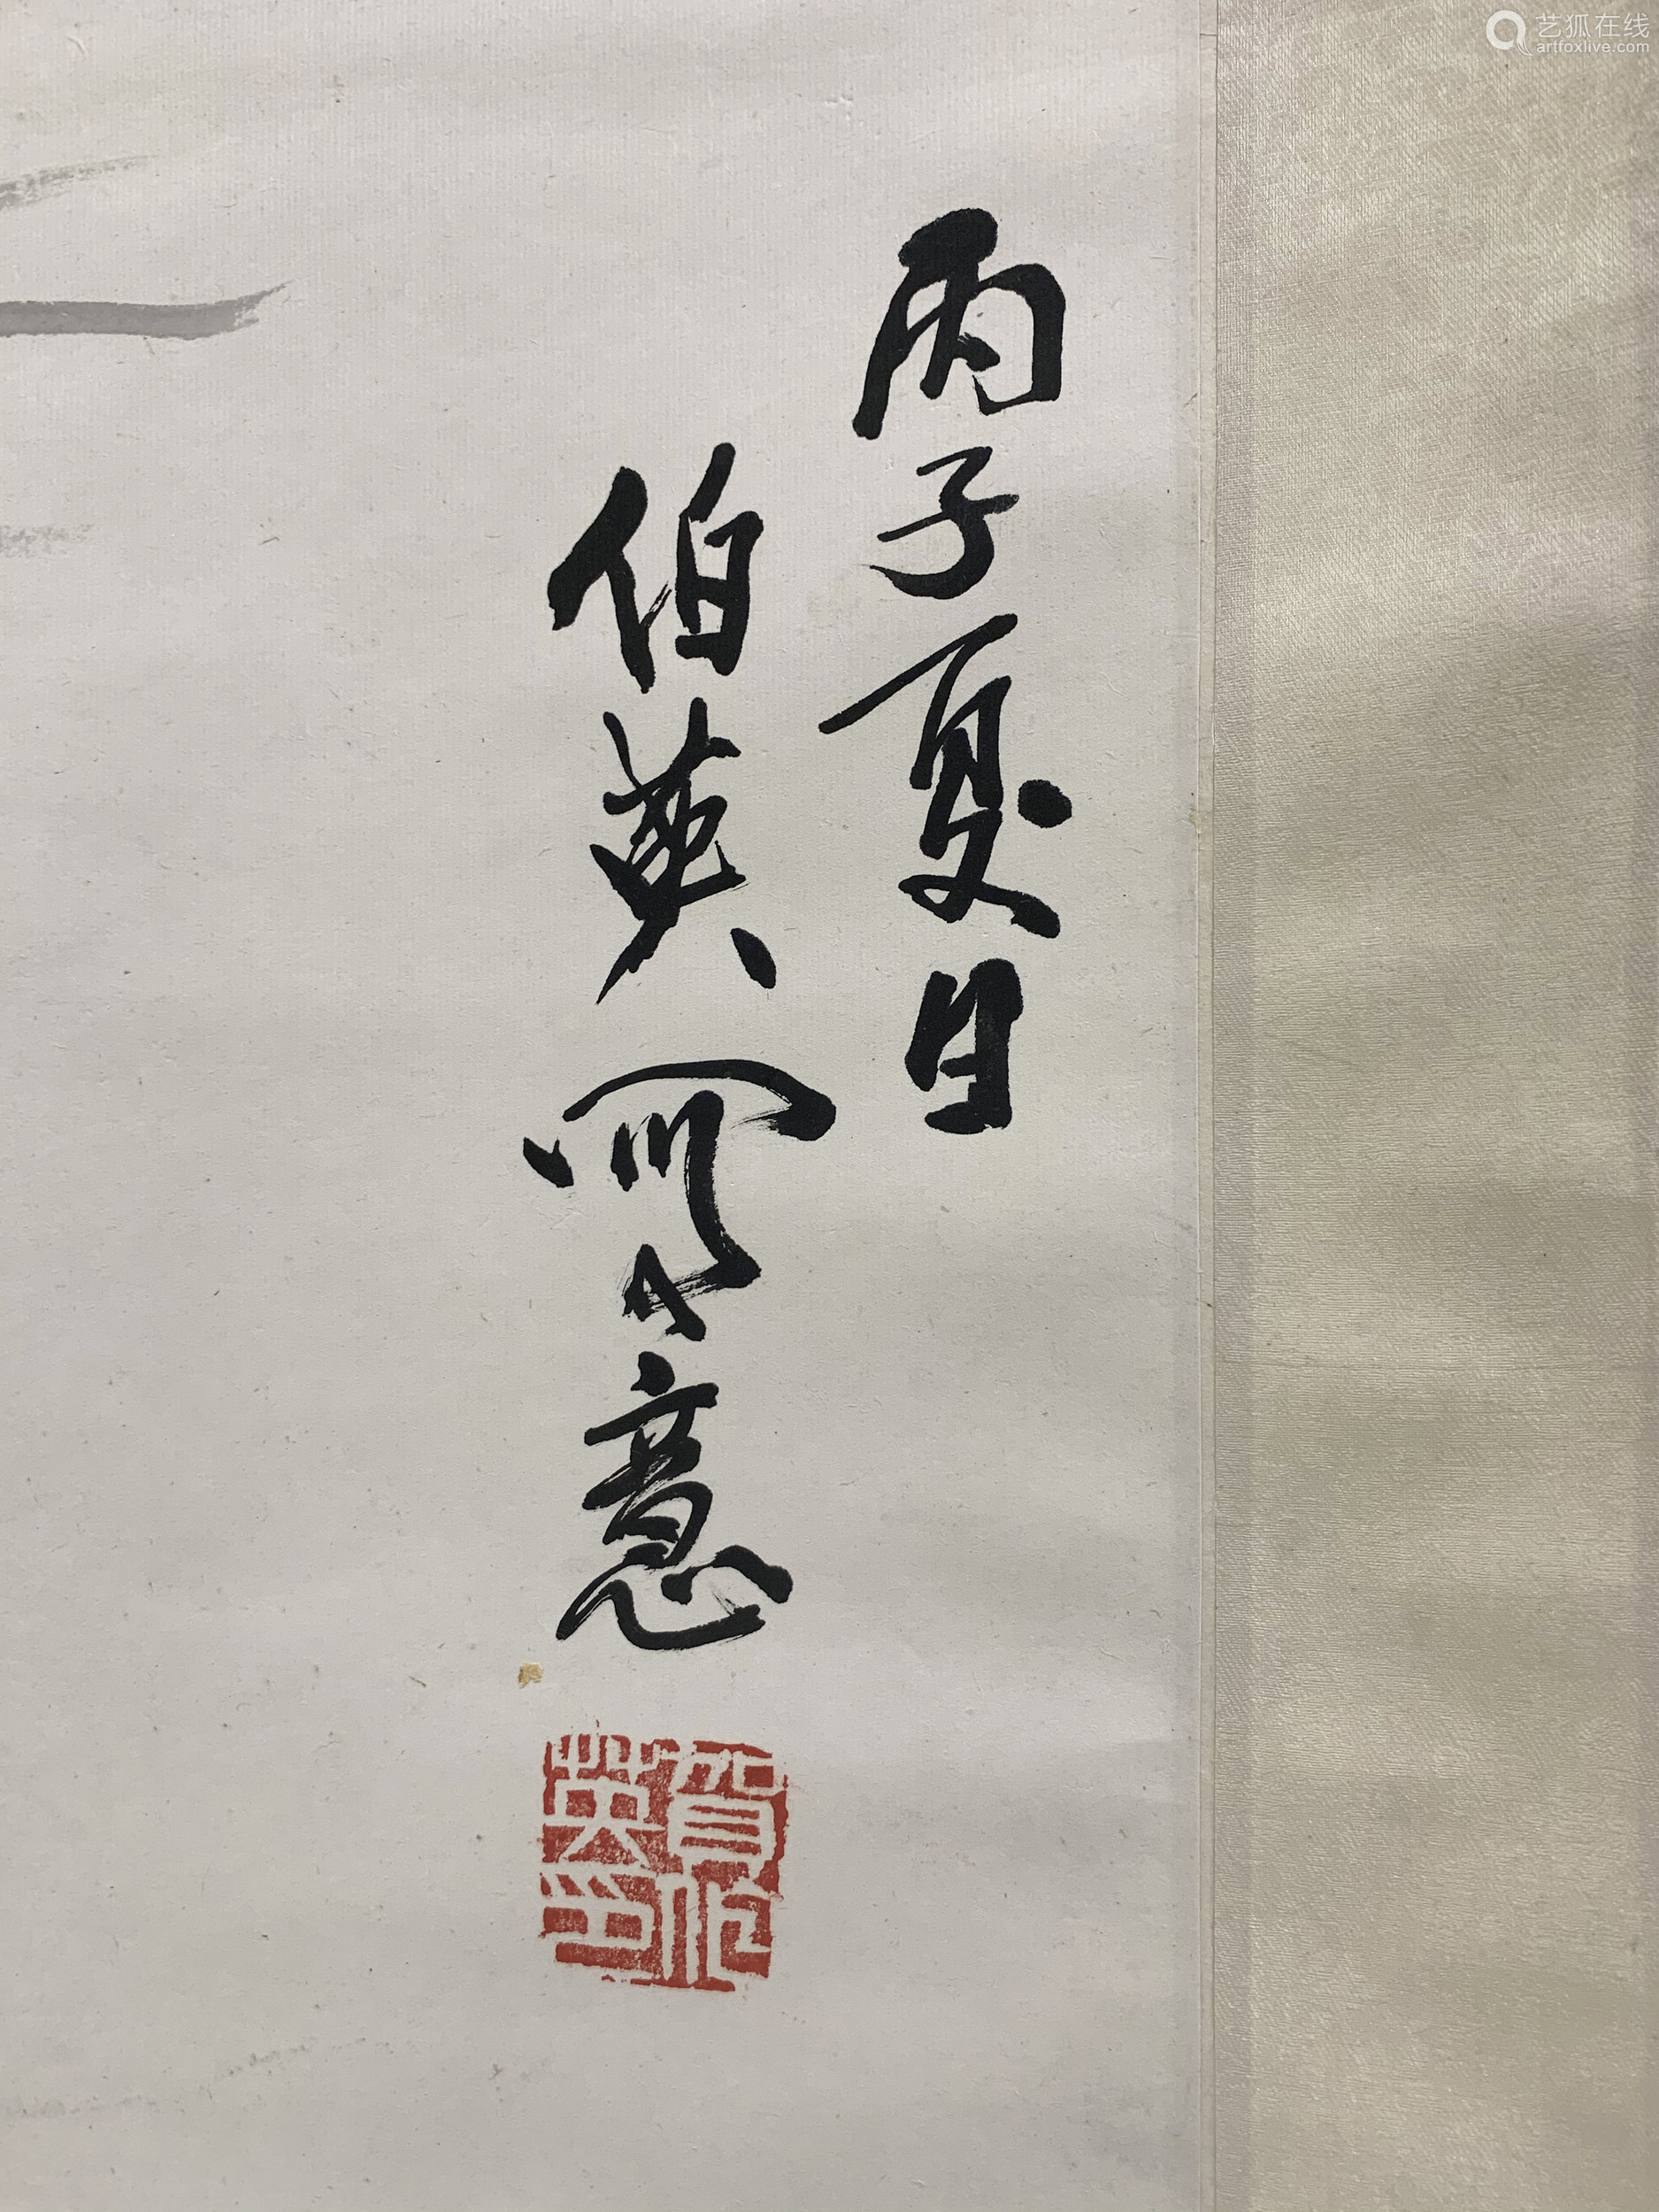 艺狐在线
artfoxlive.com
丙子夏日
伯英写意
賀伯
英印